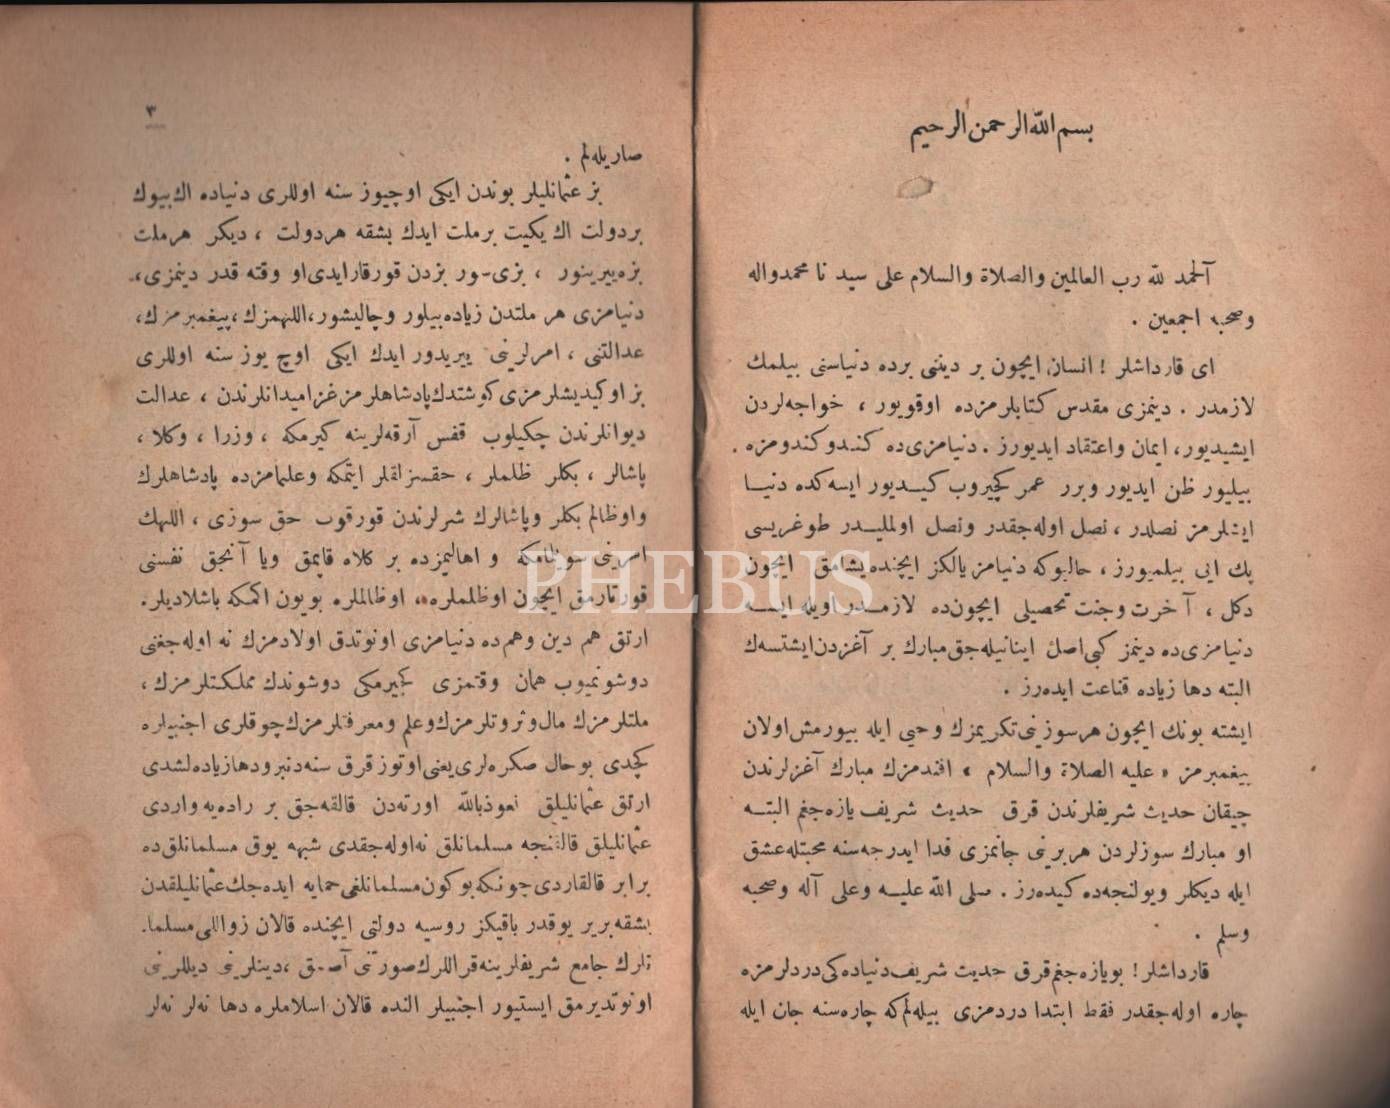 بسم الله الرحمن الرحيم
آلحمد لله رب العالمين والصلاة والسلام على سيد نا محمدواله
وصحبه اجمعين .
اى قارداشلر ! انسان ايچون بر ديننى برده دنياسنى بيلمك
لازمدر . دينمزى مقدس كتابلرمزده اوقويور ، خواجه‌لردن
ايشيديور، ايمان واعتقاد ايديورز . دنيامزى‌ده كندوكندومزه
بيليور ظن ايديور وبرر عمر كچيروب كيديور ايسه‌كده دنيا
ايشلرمز نصلدر ، نصل اوله‌جقدر ونصل اولمليدر طوغريسى
پك ايى بيلميورز ، حالبوكه دنيامز يالكز ايچنده‌يشامق ايچون
دكل ، آخرت وجنت تحصيلى ايچون‌ده لازمدر اويله ايسه
دنيامزى‌ده دينمز كبى‌اصل اينانيله‌جق‌مبارك بر آغزدن‌ايشتسه‌ك
البته دها زياده قناعت ايده‌رز .
ايشته بونك ايچون هرسوزينى‌تكريمزك وحيى ايله بيورمش‌اولان
پيغمبرمز « عليه الصلاة والسلام » افندمزك مبارك آغزلرندن
چيقان حديث شريفلرندن قرق حديث شريف يازه‌جغم البته
او مبارك سوزلردن هربرينى جانمزى فدا ايدرجه‌سنه محبتله‌عشق
ايله ديكلر ويولنجه‌ده كيده‌رز . صلى الله عليه وعلى آله وصحبه
وسلم .
قارداشلر ! بويازه‌جغم‌قرق حديث شريف‌دنياده‌كى‌دردلرمزه
چاره اوله‌جقدر فقط ابتدا دردمزى بيله‌لم‌كه چاره‌سنه جان ايله
٣
صاريله‌لم .
بز عثمانليلر بوندن ايكى اوچيوز سنه اوللرى دنياده اك‌بيوك
بردولت اك يكيت برملت ايدك بشقه هردولت ، ديكر هرملت
بزه‌ييرينور ، بزى‌ور بزدن قورقارايدى‌او وقته قدر دينمزى،
دنيامزى هر ملتدن زياده‌بيلور وچاليشور،اللهمزك،پيغمبرمزك،
عدالتنى ، امرلرينى ييريدور ايدك ايكى اوچ يوز سنه اوللرى
بزاوكيديشلرمزى‌كوشتدك‌پادشاهلرمزغزاميدانلرندن ، عدالت
ديوانلرندن چكيلوب قفس آرقه‌لرينه كيرمكه ، وزرا ، وكلا ،
پاشالر ، بكلر ظلملر ، حقسزلقلر ايتمكه وعلمامزده پادشاهلرك
واوظالم بكلر وپاشالرك شرلرندن قورقوب حق سوزى ، اللهك
امرينى سوظامكه و اهاليمزده بر كلاه قاپمق ويا آنجق نفسنى
قورتارمق ايچون اوظلملره ، اوظالملره بويون اكمكه باشلاديلر.
ارتق هم دين وهم‌ده دنيامزى اونوتدق اولادمزك نه اوله‌جغنى
دوشونميوب همان وقتمزى كچيرمكى دوشوندك مملكتلرمزك،
ملتلرمزك مال‌وثروتلرمزك‌وعلم ومعرفتلرمزك‌چوقلرى اجنبيلره
كچدى بوحال صكره‌لرى‌يعنى‌اوتوز قرق سنه‌دنبرودهازياده‌لشدى
ارتق عثمانليلق نعوذبالله اورته‌دن قالقه‌جق بر راده‌يه‌واردى
عثمانليلق قالقنجه مسلمانلق نه‌اوله‌جقدى شبهه يوق مسلمانلق‌ده
برابر قالقاردى‌چونكه‌بوكون‌مسلمانلغى‌حمايه ايده‌جك‌عثمانليلقدن
بشقه‌برير يوقدر باقيكز روسيه دولتى ايچنده قالان زواللى‌مسلما-
نلرك جامع شريفلرينه‌قراللرك‌صورتنى آصمق ،دينلرينى ديللرينى
اونوتديرمق ايستيور اجنبيلر النده قالان اسلاملره دها نه‌لر نه‌لر
PHEBUS